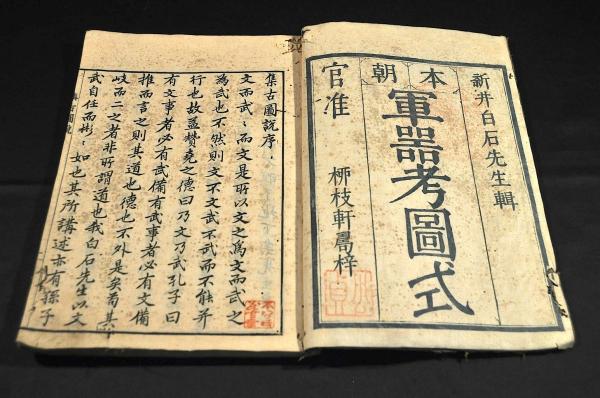 新井白石先生輯
本朝
軍器考圖式
官准
柳枝軒梓
集古圖說序
文而武〻而文是所以文之爲文而武之
為武也不然則文不文武不武而不能并
行也故益贊堯之德曰乃文乃武孔子曰
有文事者必有武備有武事者必有文備
推而言之則其道也德也不外是矣苟其
岐而二之者非所謂道也我白石先生以文
武自任而彬〻如也其所講述亦有孫子